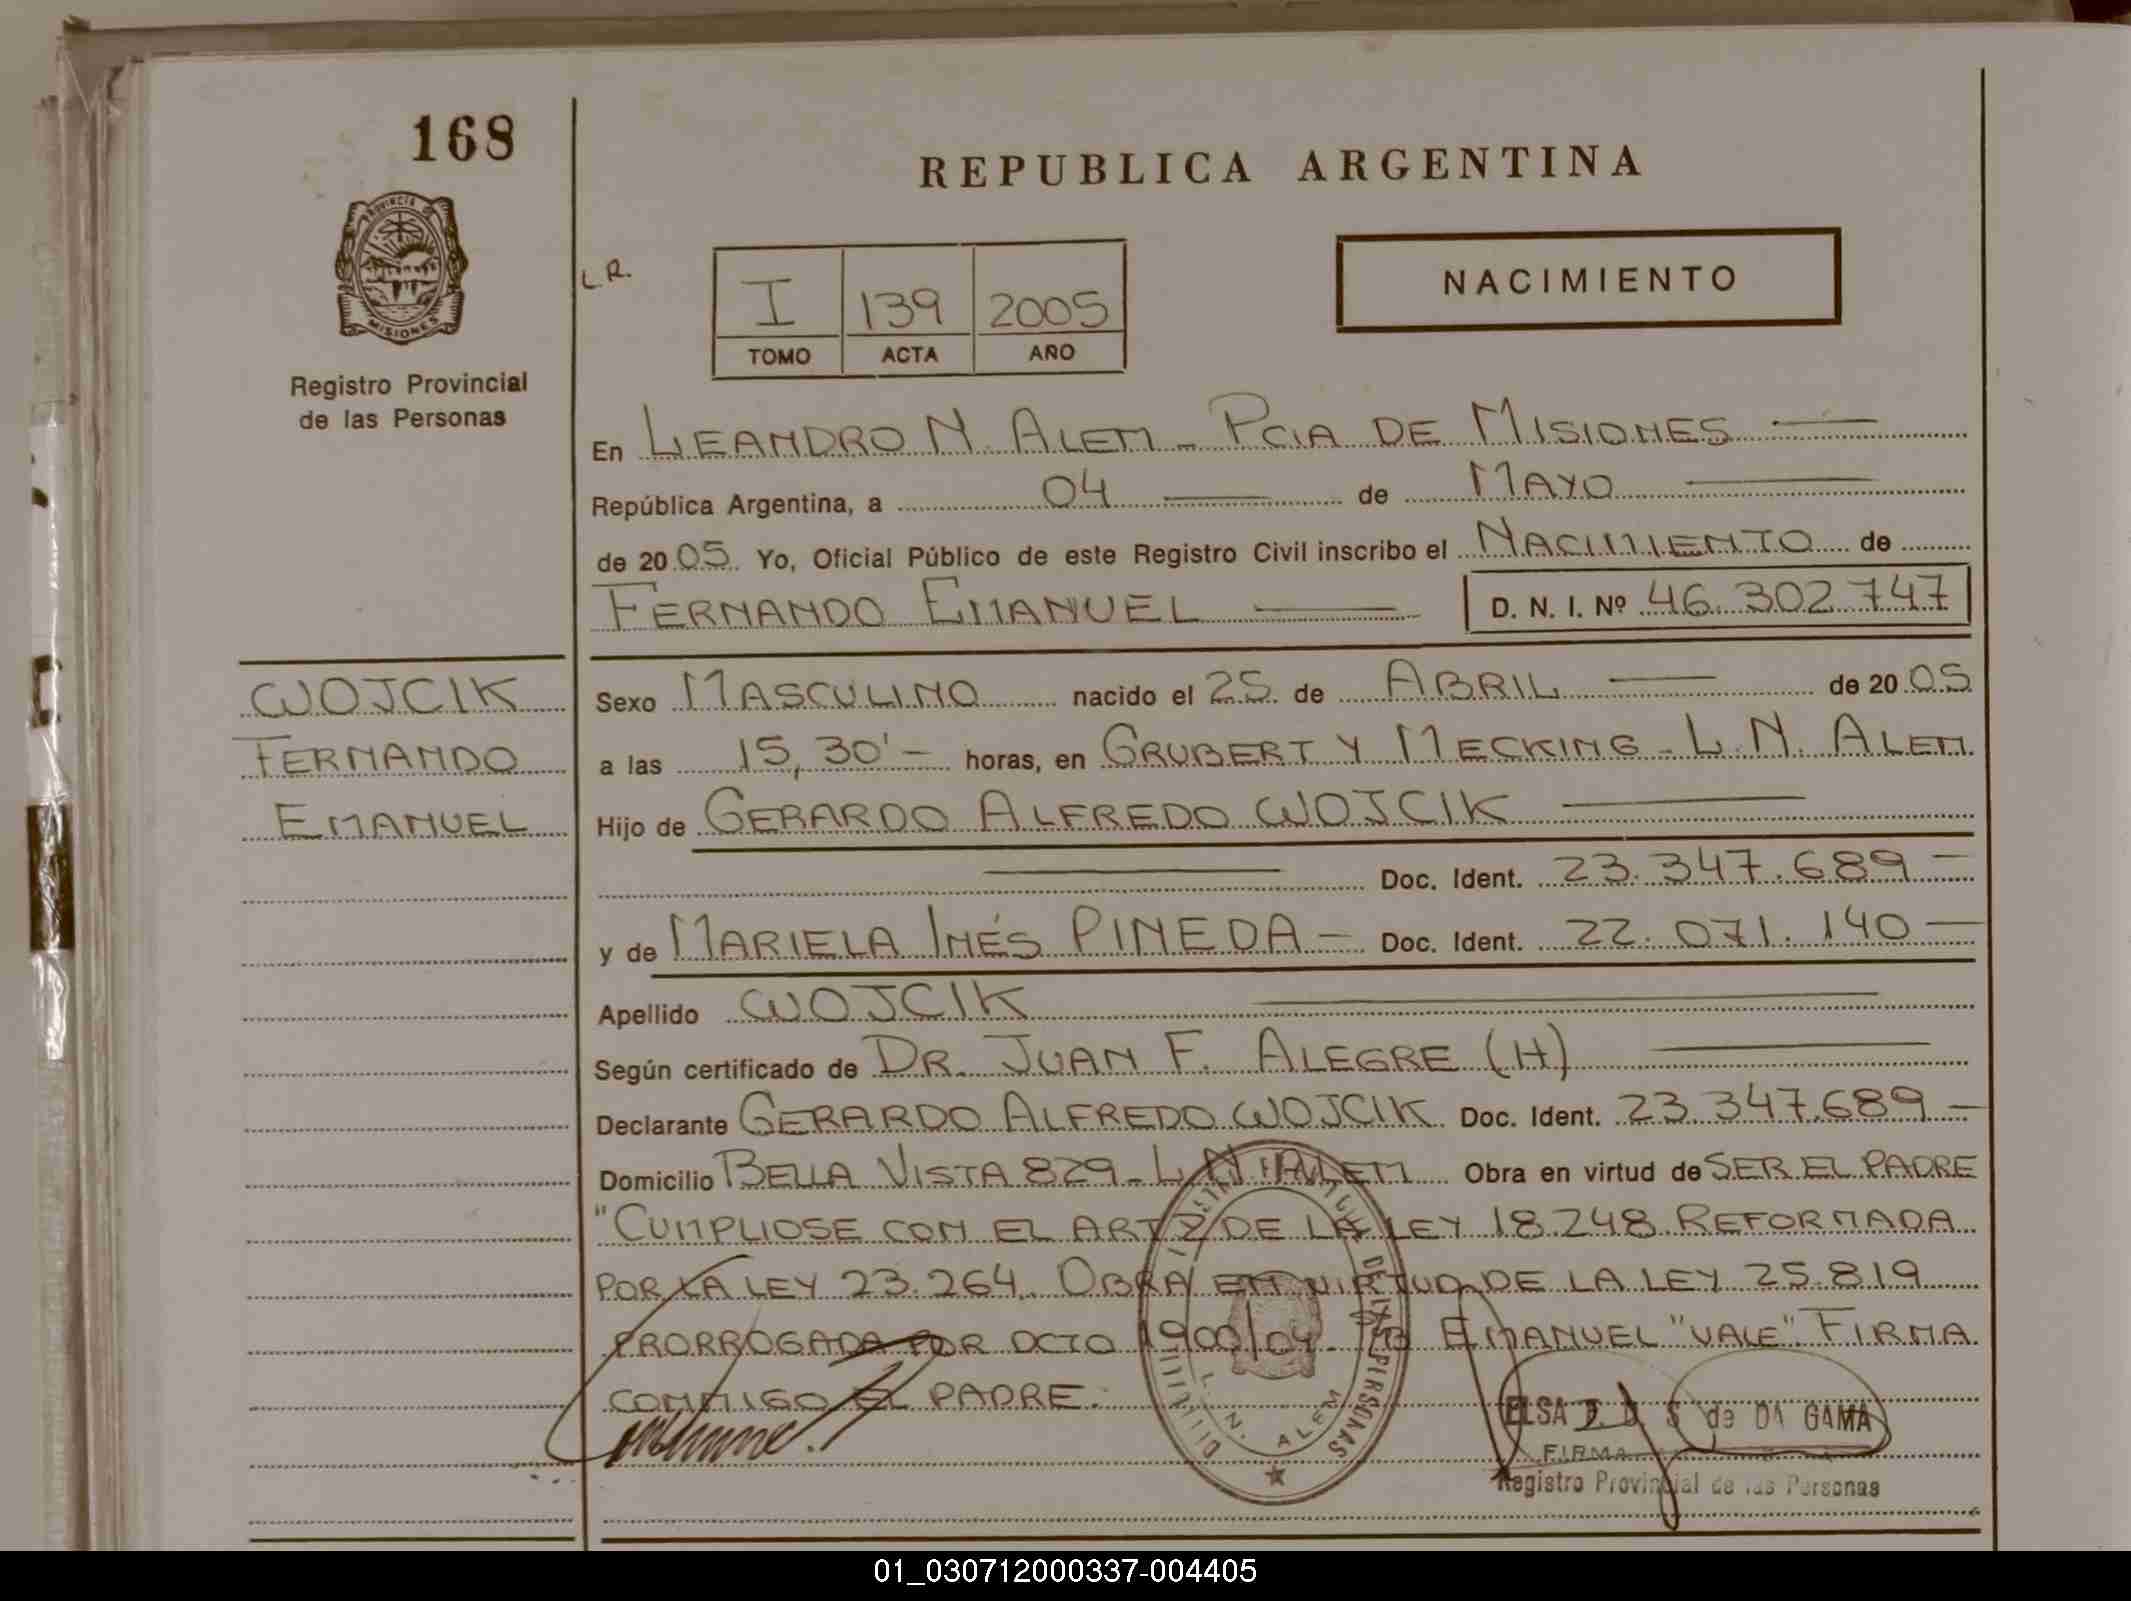 168
REPUBLICA ARGENTINA
PROVINCIA DE
MISIONES
Registro Provincial
de las Personas
L.R.
I 139 2005
TOMO ACTA AÑO
NACIMIENTO
En LEANDRO N. ALEM - PCIA DE MISIONES
República Argentina, a 04 de MAYO
de 2005 Yo, Oficial Público de este Registro Civil inscribo el NACIMIENTO de
FERNANDO EMANUEL D. N. I. Nº 46.302747
WOJCIK
FERNANDO
EMANUEL
Sexo MASCULINO nacido el 25 de ABRIL de 2005
a las 15,30'- horas, en GRUBERT Y MECKING - L.N. ALEM
Hijo de GERARDO ALFREDO WOJCIK
Doc. Ident. 23.347.689-
y de MARIELA INÉS PINEDA - Doc. Ident. 22.071.140-
Apellido WOJCIK
Según certificado de DR. JUAN F. ALEGRE (H)
Declarante GERARDO ALFREDO WOJCIK Doc. Ident. 23.347.689-
Domicilio BELLA VISTA 829 - L.N. ALEM Obra en virtud de SER EL PADRE
"CUMPLIOSE CON EL ART 2 DE LA LEY 18.248 REFORMADA
POR LA LEY 23.264. OBRA EN VIRTUD DE LA LEY 25.819
PRORROGADA POR DCTO 1900/04. EMANUEL "VALE". FIRMA
CONMIGO EL PADRE.
L. N. ALEM
ELSA de DA GAMA
FIRMA
Registro Provincial de las Personas
01_030712000337-004405